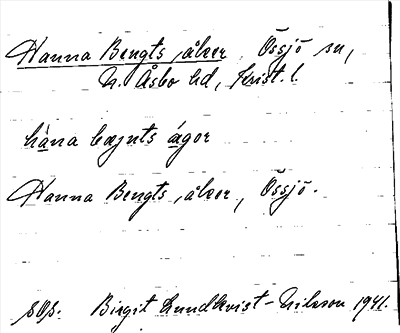 Hanna Bengts åker Össjö sn,
N. Åsbo hd, Krist. l.
håna bæjnts ágor
Hanna Bengts åker, Össjö.
Birgit Lundkvist-Nilsson 1941.